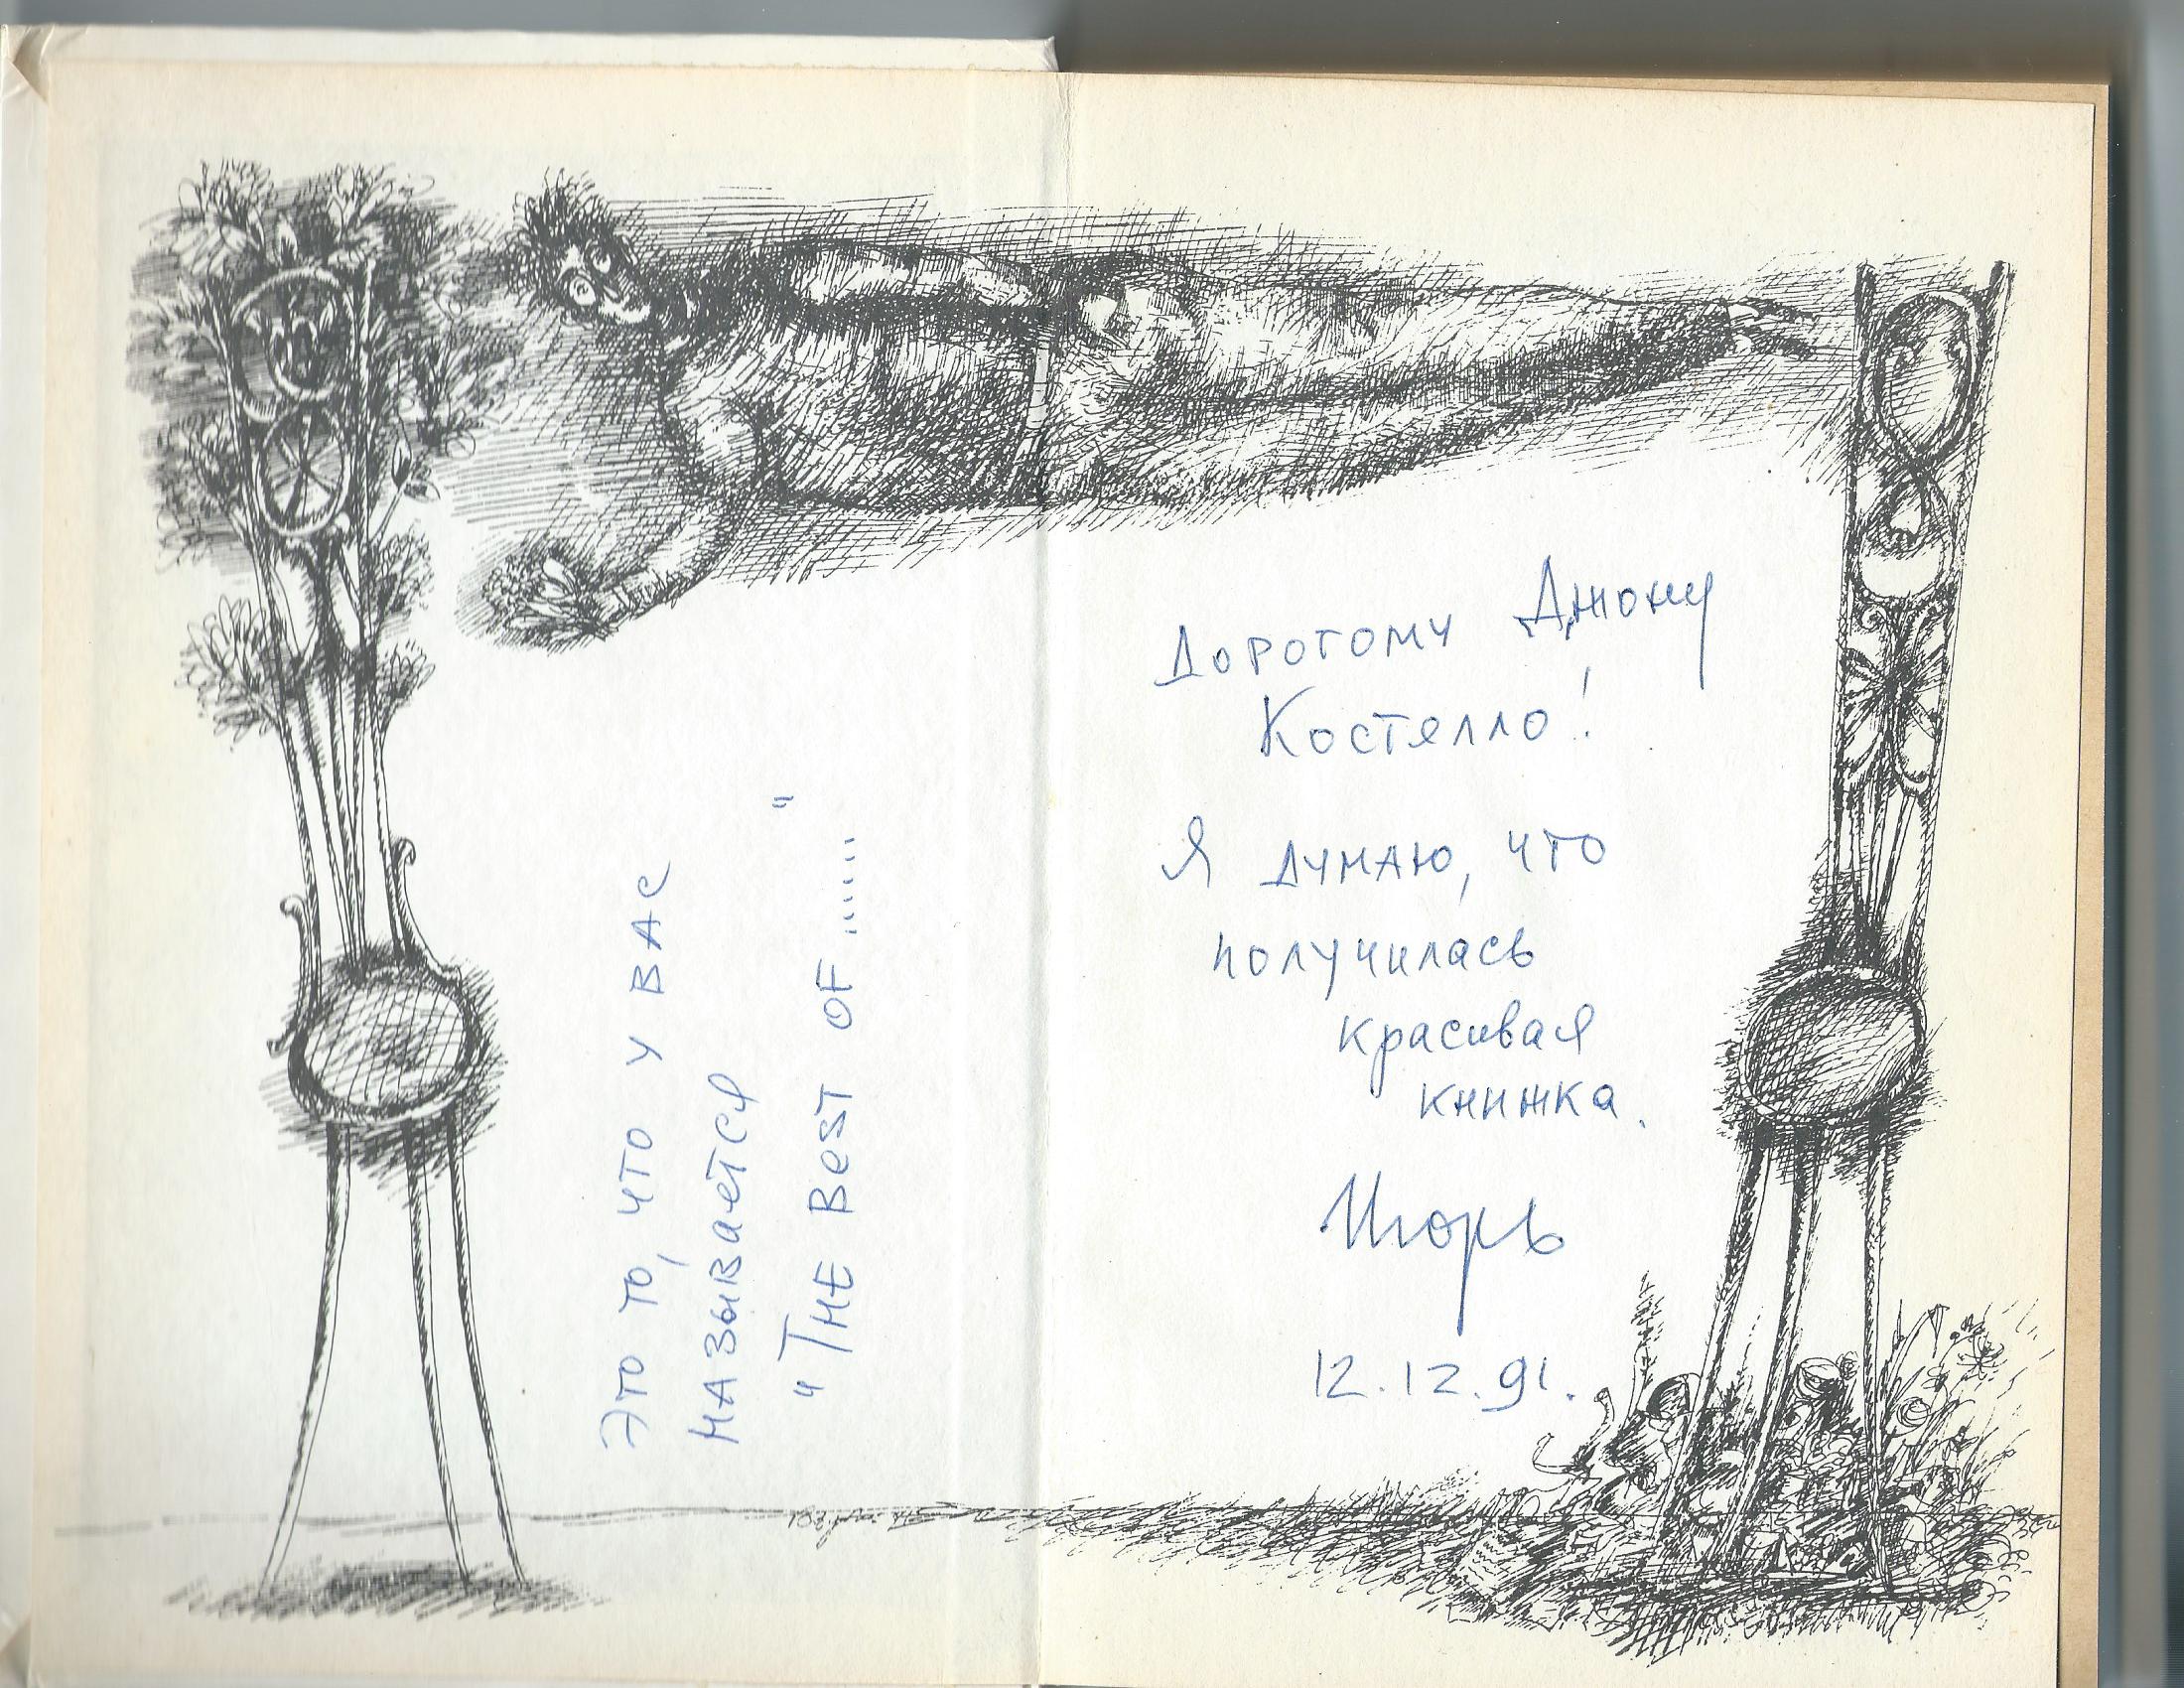 Это то, что у вас
называется
"THE BEST OF ......"
Дорогому Джону
Костелло!
Я думаю, что
получилась
красивая
книжка.
Игорь
12.12.91.